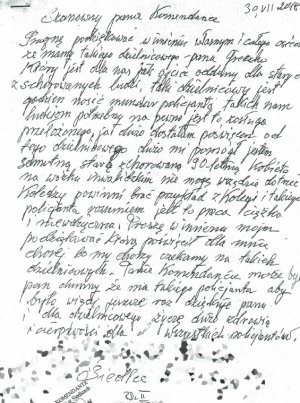 30 VII 2018
Szanowny panie Komendancie
Pragnę podziękować w imieniu własnym i całego
że mamy takiego dzielnicowego pana Grzecha
który jest dla nas jak ojciec oddany dla starych
z schorowanych ludzi, taki dzielnicowy jest
godzien nosić mundur policjanta takich nam
ludziom potrzeba na pewno jest to zasługa
przełożonego, jak dużo dostałam poświęceń od
tego dzielnicowego dużo mi pomógł jestem
samotną starą schorowaną 90 letnią kobietą
na wózku inwalidzkim nie mogę wszędzie dotrzeć
Koledzy powinni brać przykład z kolegi i takiego
policjanta rozumiem jest to praca ciężka
i niewdzięczna. Proszę w imieniu mojem
podziękować którą poświęcił dla mnie
chorej bo my chorzy czekamy na takich
dzielnicowych. Panie Komendancie może być
pan dumny że ma takiego policjanta aby
było więcej jeszcze raz dziękuję panu
i dla dzielnicowego życzę dużo zdrowia
i cierpliwości dla wszystkich policjantów.
Siedlce
KOMENDANTA